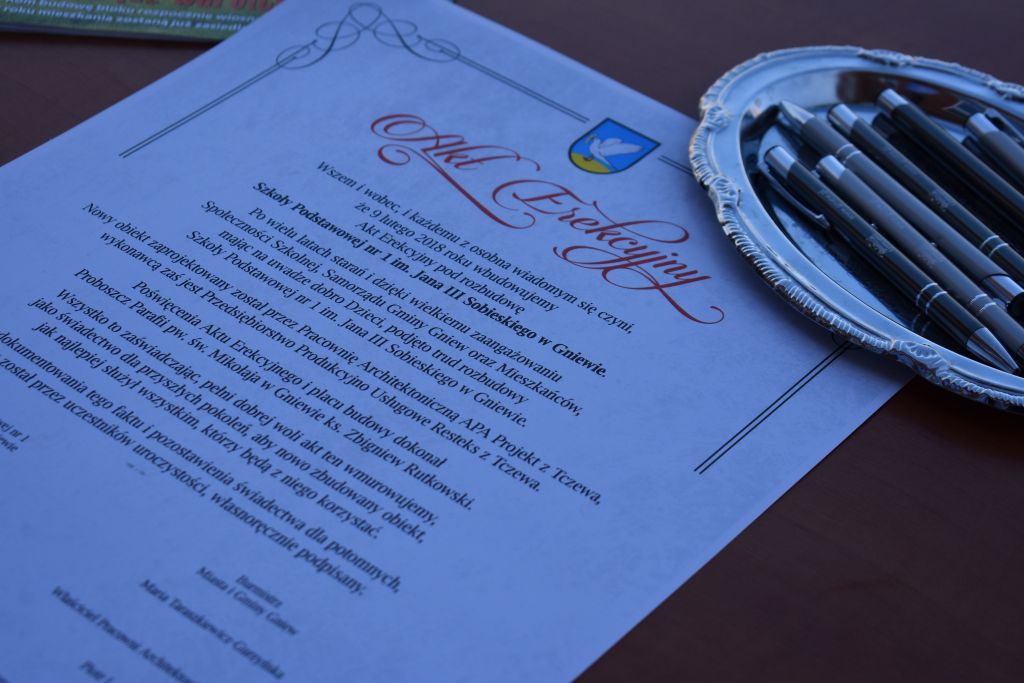 roku mieszkania zostaną już zasiedl
Akt Erekcyjny
Wszem i wobec, i każdemu z osobna wiadomym się czyni,
że 9 lutego 2018 roku wbudowujemy
Akt Erekcyjny pod rozbudowę
Szkoły Podstawowej nr 1 im. Jana III Sobieskiego w Gniewie.
Po wielu latach starań i dzięki wielkiemu zaangażowaniu
Społeczności Szkolnej, Samorządu Gminy Gniew oraz Mieszkańców,
mając na uwadze dobro Dzieci, podjęto trud rozbudowy
Szkoły Podstawowej nr 1 im. Jana III Sobieskiego w Gniewie.
Nowy obiekt zaprojektowany został przez Pracownię Architektoniczną APA Projekt z Tczewa,
wykonawcą zaś jest Przedsiębiorstwo Produkcyjno UsługoweResteks z Tczewa.
Poświęcenia Aktu Erekcyjnego i placu budowy dokonał
Proboszcz Parafii pw. św. Mikołaja w Gniewie ks. Zbigniew Rutkowski.
Wszystko to zaświadczając, pełni dobrej woli akt ten wmurowujemy,
jako świadectwo dla przyszłych pokoleń, aby nowo zbudowany obiekt,
jak najlepiej służył wszystkim, którzy będą z niego korzystać.
dokumentowania tego faktu i pozostawienia świadectwa dla potomnych,
został przez uczestników uroczystości, własnoręcznie podpisany.
nr 1
Burmistrz
Miasta i Gminy Gniew
Maria Taraszkiewicz-Gurzyńska
Właściciel Pracowni Architekton
Piotr